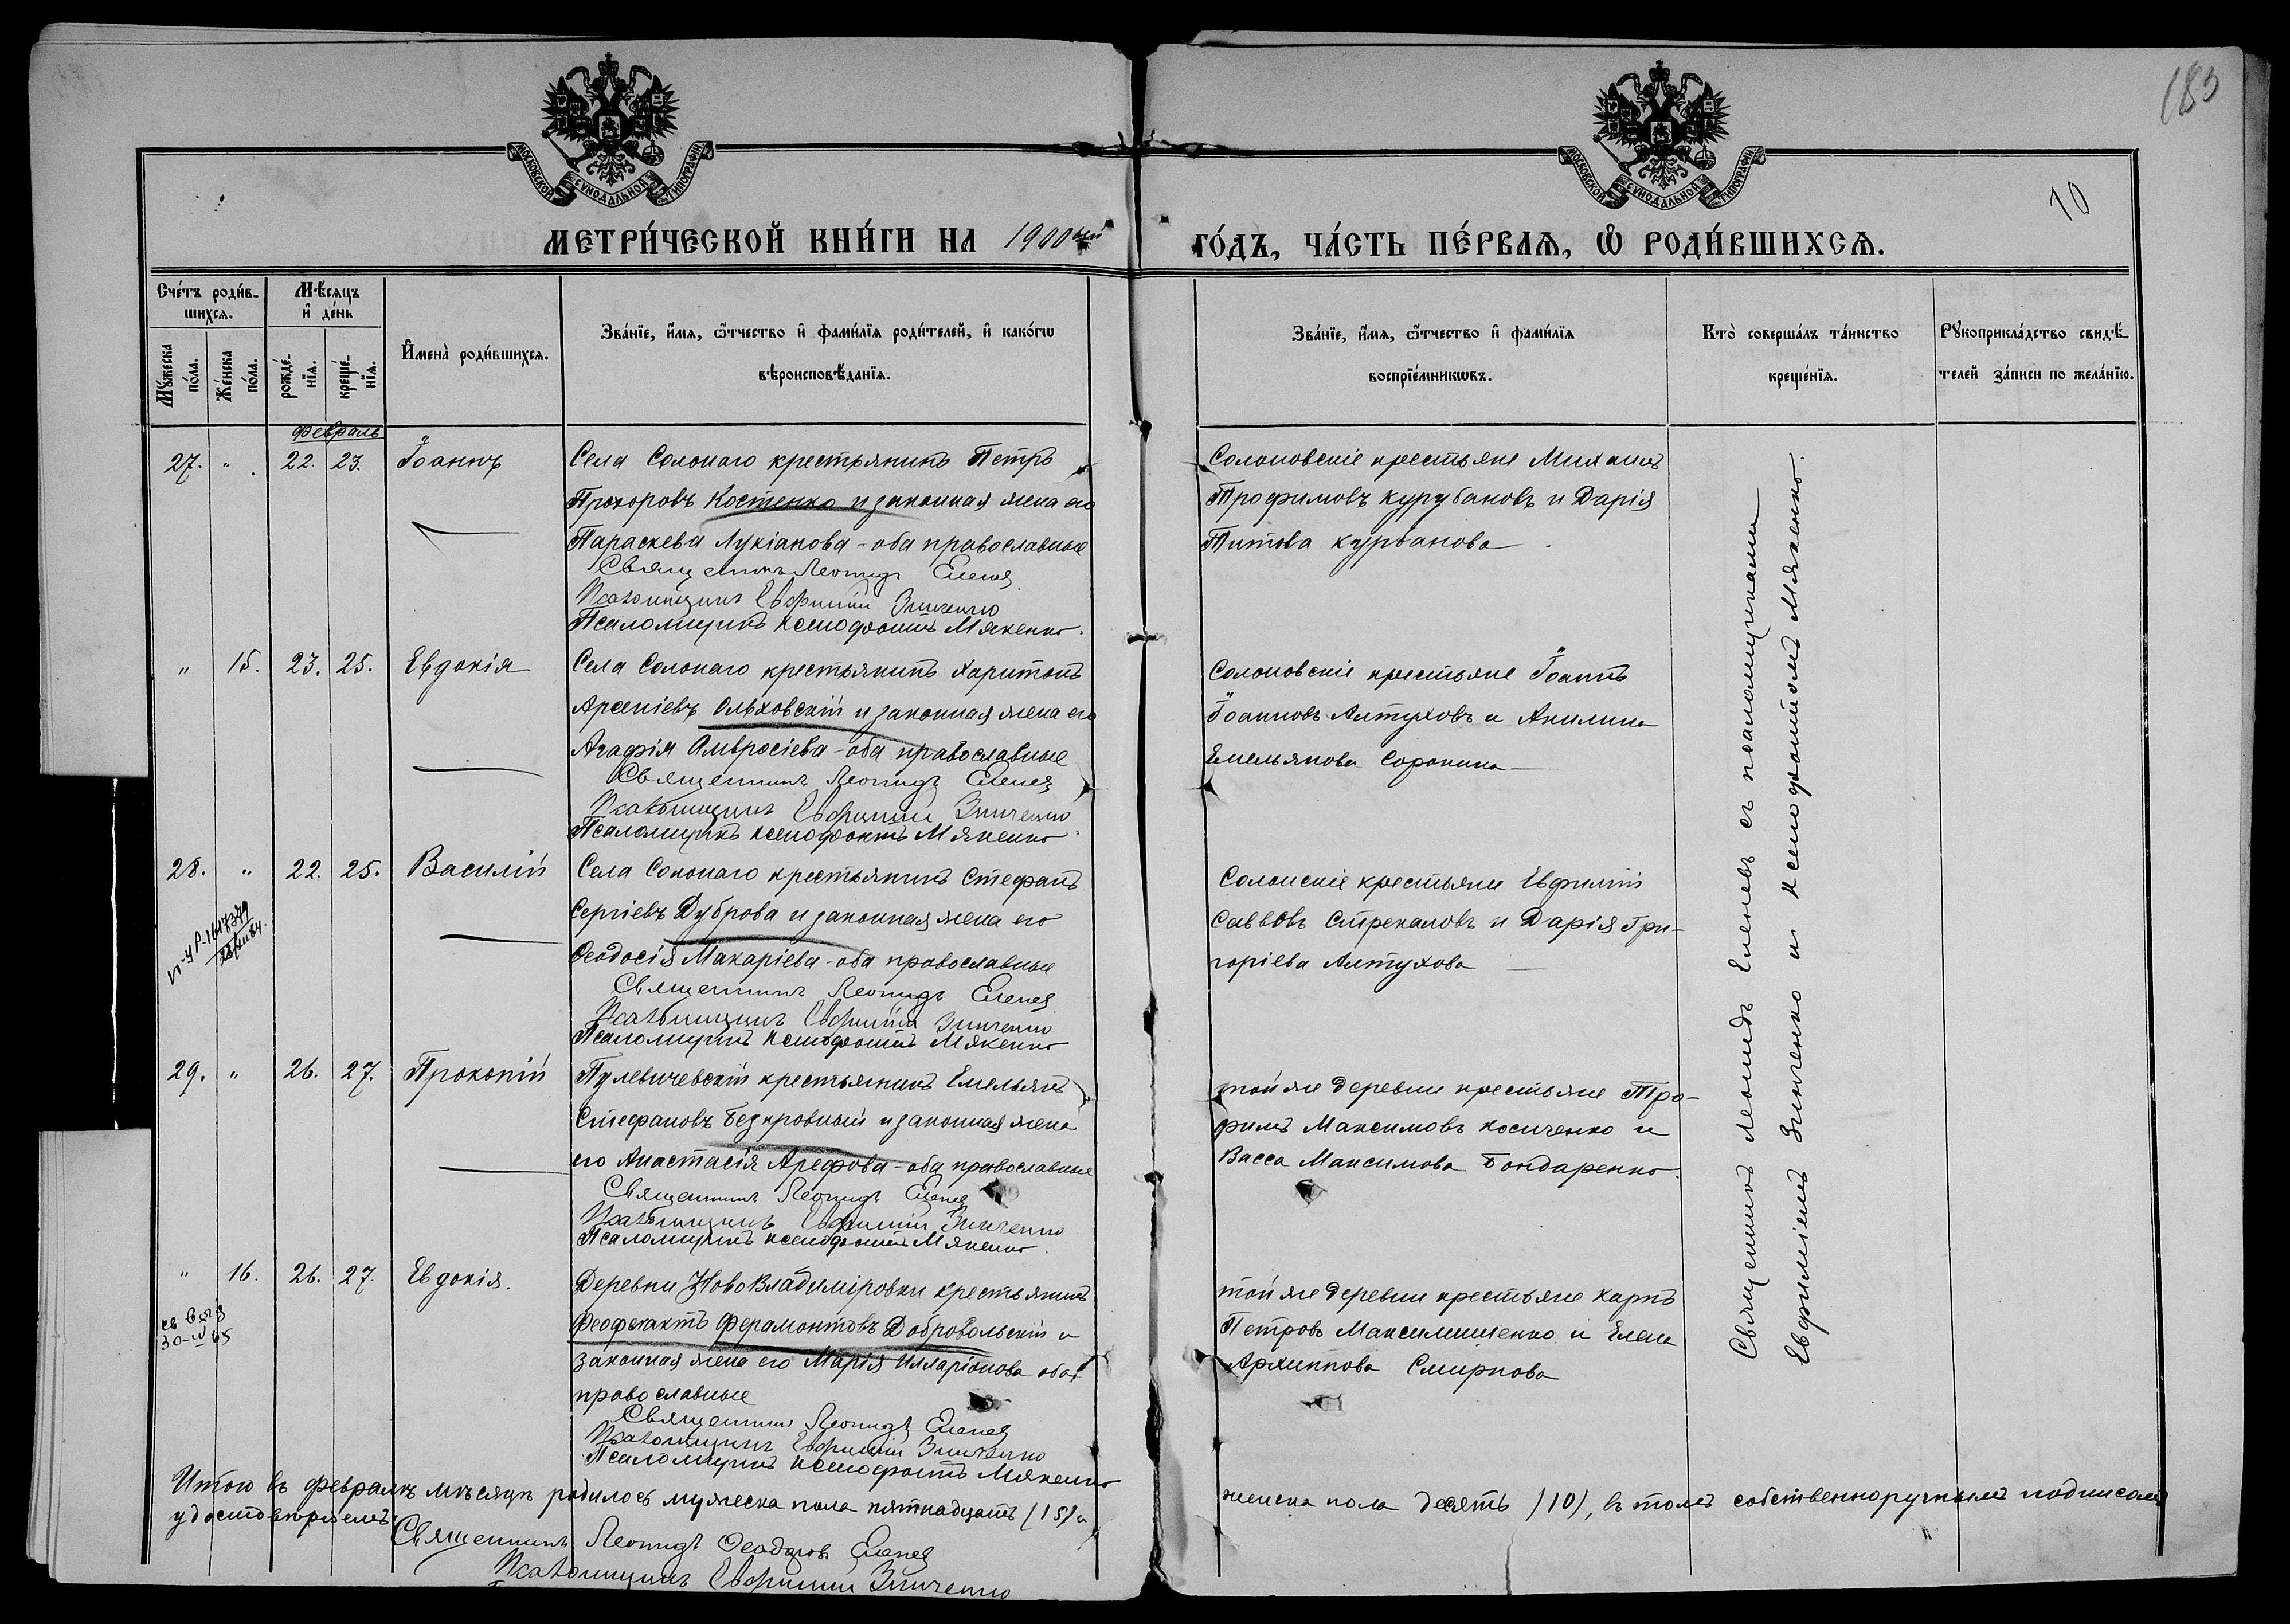 183
10
МОСКОВСКОЙ СѴНОДАЛЬНОЙ ТИПОГРАФІИ
МОСКОВСКОЙ СѴНОДАЛЬНОЙ ТИПОГРАФІИ
МЕТРИ́ЧЕСКОЙ КНИ́ГИ НА 1900ый ГО́ДЪ, ЧА́СТЬ ПЕ́РВАѦ, Ѽ РОДИ́ВШИХСѦ.
Сче́тъ роди́в-
шихсѧ.
Мꙋ́жеска
по́ла.
Же́нска
по́ла.
Мѣ́сѧцъ
и҆ де́нь
рожде́-
нїѧ.
креще́-
нїѧ.
И҆мена̀ роди́вшихсѧ.
Зва́нїе, и҆́мѧ, ѻ҆́тчество и҆ фами́лїѧ роди́телей, и҆ како́гѡ
вѣроисповѣ́данїѧ.
Зва́нїе, и҆́мѧ, ѻ҆́тчество и҆ фами́лїѧ
воспрїе́мникѡвъ.
Кто̀ соверша́лъ та́инство
креще́нїѧ.
Рꙋкоприкла́дство свидѣ́-
телей за́писи по жела́нїю.
Февраль
27. " 22. 23. Іоаннъ
Села Солонаго крестьянинъ Петръ
Прохоровъ Костенко и законная жена его
Параскева Лукіанова - оба православные
Священникъ Леонидъ Еленевъ
Псаломщикъ Евфимій Зинченко
Псаломщикъ Ксенофонтъ Мякенко.
Солоновскіе крестьяне Михаилъ
Трофимовъ Курубановъ и Дарія
Титова Курбанова
" 15. 23. 25. Евдокія
Села Солонаго крестьянинъ Харитонъ
Арсеніевъ Ольховскій и законная жена его
Агафія Амвросіева - оба православные
Священникъ Леонидъ Еленевъ
Псаломщикъ Евфимій Зинченко
Псаломщикъ Ксенофонтъ Мякенко
Солоновскіе крестьяне Іоаннъ
Іоанновъ Алтуховъ и Акилина
Емельянова Сорокина
28. " 22. 25. Василій
Села Солонаго крестьянинъ Стефанъ
Сергіевъ Дуброва и законная жена его
Ѳеодосія Макаріева - оба православные
Священникъ Леонидъ Еленевъ
Псаломщикъ Евфимій Зинченко
Псаломщикъ Ксенофонтъ Мякенко
Солонскіе крестьяне Евфимій
Саввовъ Стрекаловъ и Дарія Гри-
горіева Алтухова
29. " 26. 27. Прокопій
Пулевичевскій крестьянинъ Емельянъ
Стефановъ Безкровный и законная жена
его Анастасія Арефова - оба православные
Священникъ Леонидъ Еленевъ
Псаломщикъ Евфимій Зинченко
Псаломщикъ Ксенофонтъ Мякенко.
той же деревни крестьяне Тро-
фимъ Максимовъ Косиченко и
Васса Максимова Бондаренко.
" 16. 26. 27. Евдокія.
Деревни НовоВладиміровки крестьянинъ
Феофилактъ Ферамонтовъ Добровольскій и
законная жена его Марія Илларіонова оба
православные
Священникъ Леонидъ Еленевъ
Псаломщикъ Евфимій Зинченко
Псаломщикъ Ксенофонтъ Мякенко
той же деревни крестьяне Карпъ
Петровъ Максимишенко и Елена
Архиппова Смирнова
Священникъ Леонидъ Еленевъ съ псаломщиками
Евфиміемъ Зинченко и Ксенофонтомъ Мякенко.
Итого въ февралѣ мѣсяцѣ родилось мужеска пола пятнадцать (15) и женска пола десять (10), въ томъ собственноручнымъ подписомъ
удостовѣряемъ:
Священникъ Леонидъ Ѳеодоровъ Еленевъ
Псаломщикъ Евфимій Зинченко